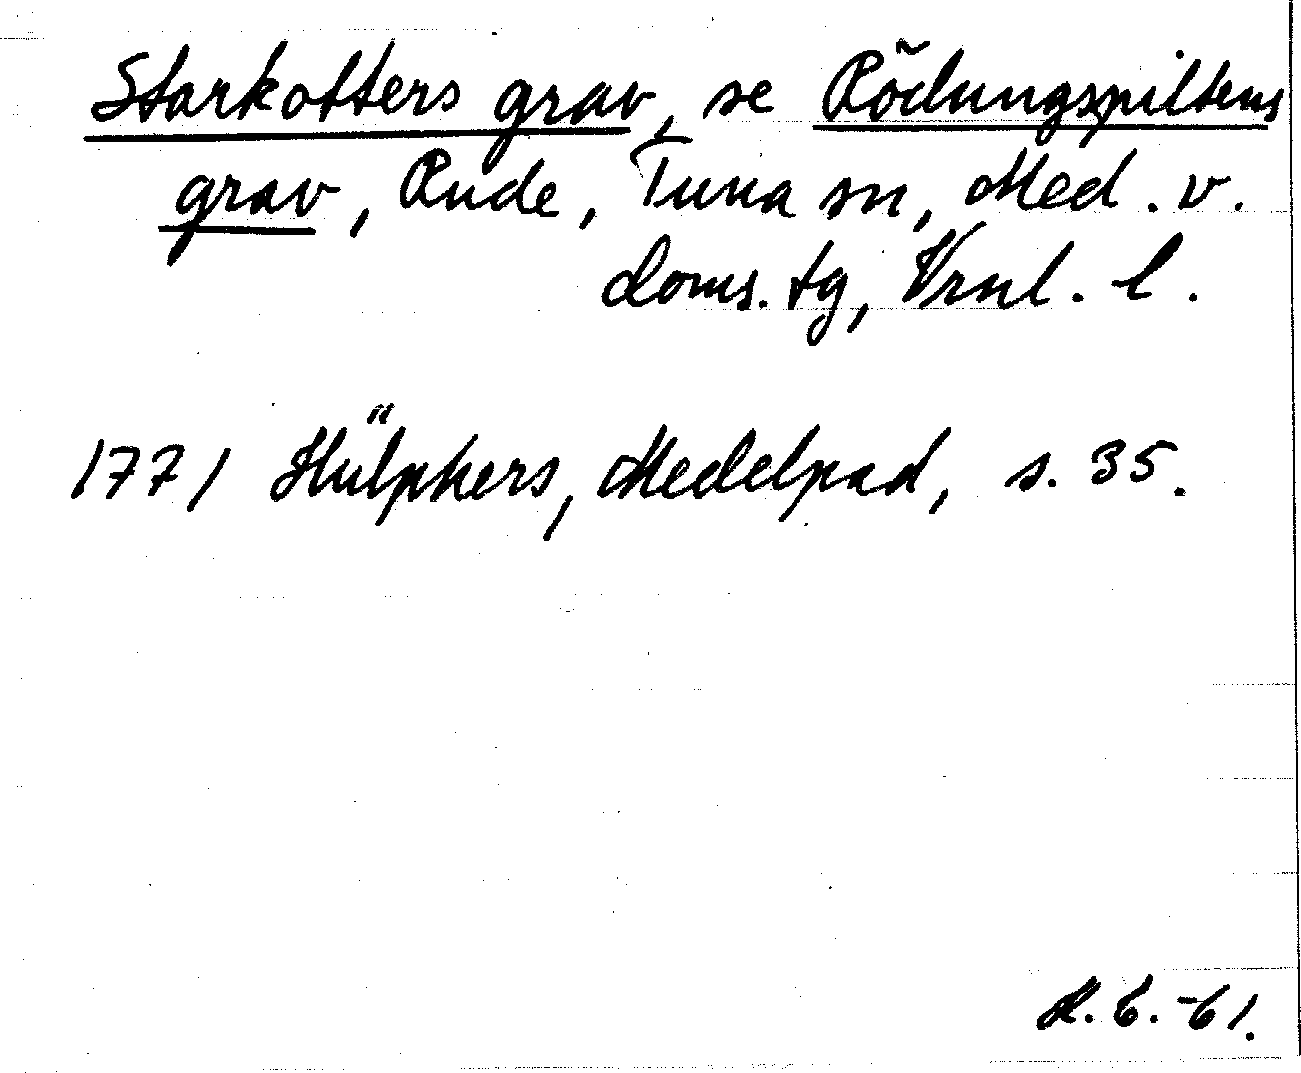 Starkotters grav, se Rödungspiltens
grav, Rude, Tuna sn, Med. v.
doms. tg, Vrnl. l.
1771 Hülphers, Medelpad, s. 35.